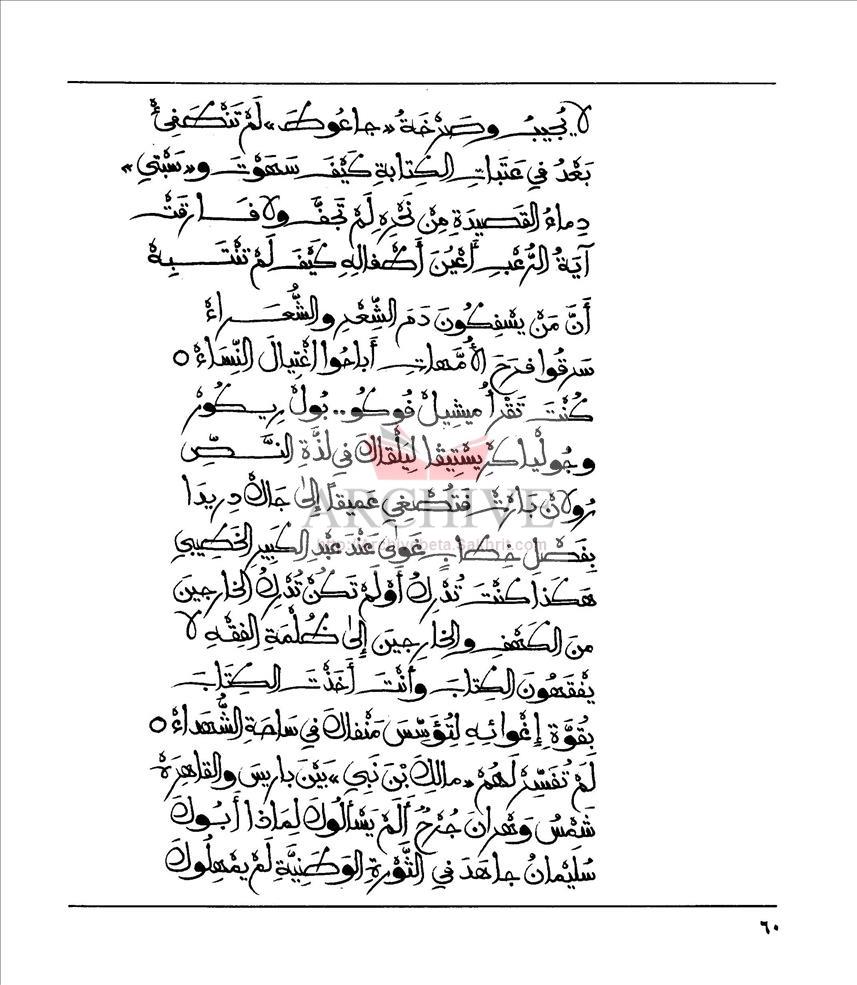 لا يُجِيبُ وصَرْخَةُ «جاعُوط» لَمْ تَنْطَفِئْ
بَعْدُ في عَتَباتِ الكِتابةِ كَيْفَ سَهَوْتَ و«سَبْتي»
دِماءُ القَصيدَةِ مِنْ نَحْرِهِ لَمْ تَجِفَّ ولا فارَقَتْ
آيَةُ الرُّعْبِ أَعْيُنَ أطْفالِهِ كَيْفَ لَمْ تَنْتَبِهْ
أَنَّ مَنْ يسْفِكُونَ دَمَ الشِّعْرِ والشُّعَراءْ
سَرقُوا فَرَحَ الأُمَّهاتِ أَباحُوا اغْتِيالَ النِّساءْ ○
كُنْتَ تَقْرَأُ ميشِيلْ فُوكُو.. بُولْ رِيكُورْ
وجُولْيا كرِيسْتِيفا لِيَلْقاكَ في لَذَّةِ النَّصِّ
رُولانْ بَارْتْ فَتُصْغي عَميقاً إِلىَ جاكْ دِريدَا
بِفَصْلِ خِطابٍ غَوى عَنْدَ عَبْدِ الكَبيرِ الخَطيبي
هَكَذا كُنْتَ تُدْرِكُ أَوْ لَمْ تَكُنْ تُدْرِكُ الخارجينَ
منَ الكَهْفِ والخارِجينَ إِلىَ ظُلْمَةِ الفِقْهِ لا
يفْقَهُونَ الكِتابَ وأنْتَ أخَذْتَ الكِتَابَ
بِقُوَّةِ إِغْوائِهِ لتُؤَسِّسَ مَنْفاكَ في سَاحَةِ الشُّهَداءْ ○
لَمْ تُفَسِّرْ لَهُمْ «مالِكَ بْنَ نَبي» بَيْنَ باريسَ والقاهِرَةْ
شَمْسُ وَهْرانَ جُرْحٌ أَلَمْ يَسْأَلُوكَ لِمَاذا أَبُوكَ
سُلَيْمانُ جاهَدَ في الثَّوْرةِ الوَطَنِيَّةِ لَمْ يمْهِلُوكَ
ARCHIVE
http://archivebeta.Sakhrit.com
٦٠